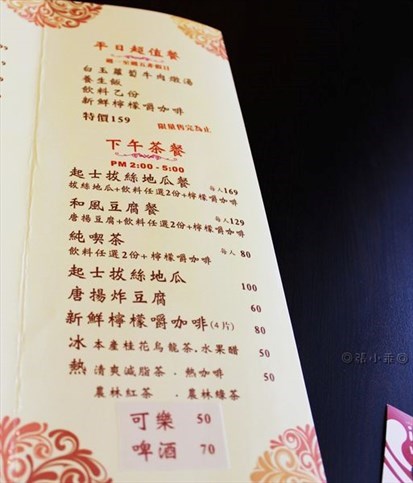 平日超值餐
週一至週五非假日
白玉蘿蔔牛肉燉湯
養生飯
飲料乙份
新鮮檸檬嚼咖啡
特價159 限量售完為止
下午茶餐
PM 2:00 - 5:00
起士拔絲地瓜餐 每人169
拔絲地瓜+飲料任選2份+檸檬嚼咖啡
和風豆腐餐 每人129
唐揚豆腐+飲料任選2份+檸檬嚼咖啡
純喫茶 每人 80
飲料任選2份+檸檬嚼咖啡
起士拔絲地瓜 100
唐揚炸豆腐 60
新鮮檸檬嚼咖啡(4片) 80
冰 本產桂花烏龍茶.水果醋 50
熱 清爽減脂茶 . 熱咖啡 50
農林紅茶 . 農林綠茶
可樂 50
啤酒 70
◎張小乖◎